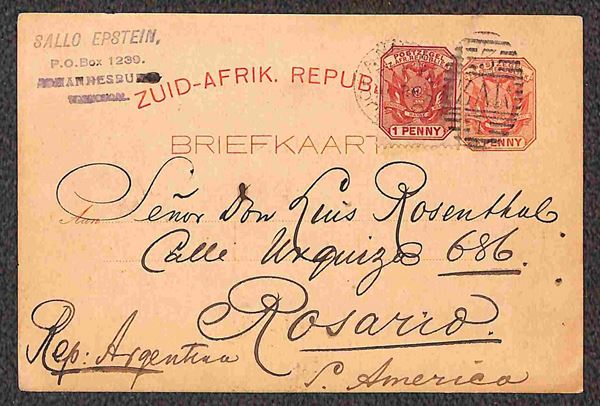 SALLO EPSTEIN,
P.O. Box 1239.
JOHANNESBURG
TRANSVAAL
ZUID-AFRIK. REPUB
POSTZEGEL
Z. AFR. REPUBLIEK
1 PENNY
PENNY
BRIEFKAART
Aan Señor Don Luis Rosenthal
Calle Urquiza 686.
Rosario.
Rep: Argentina
S. America